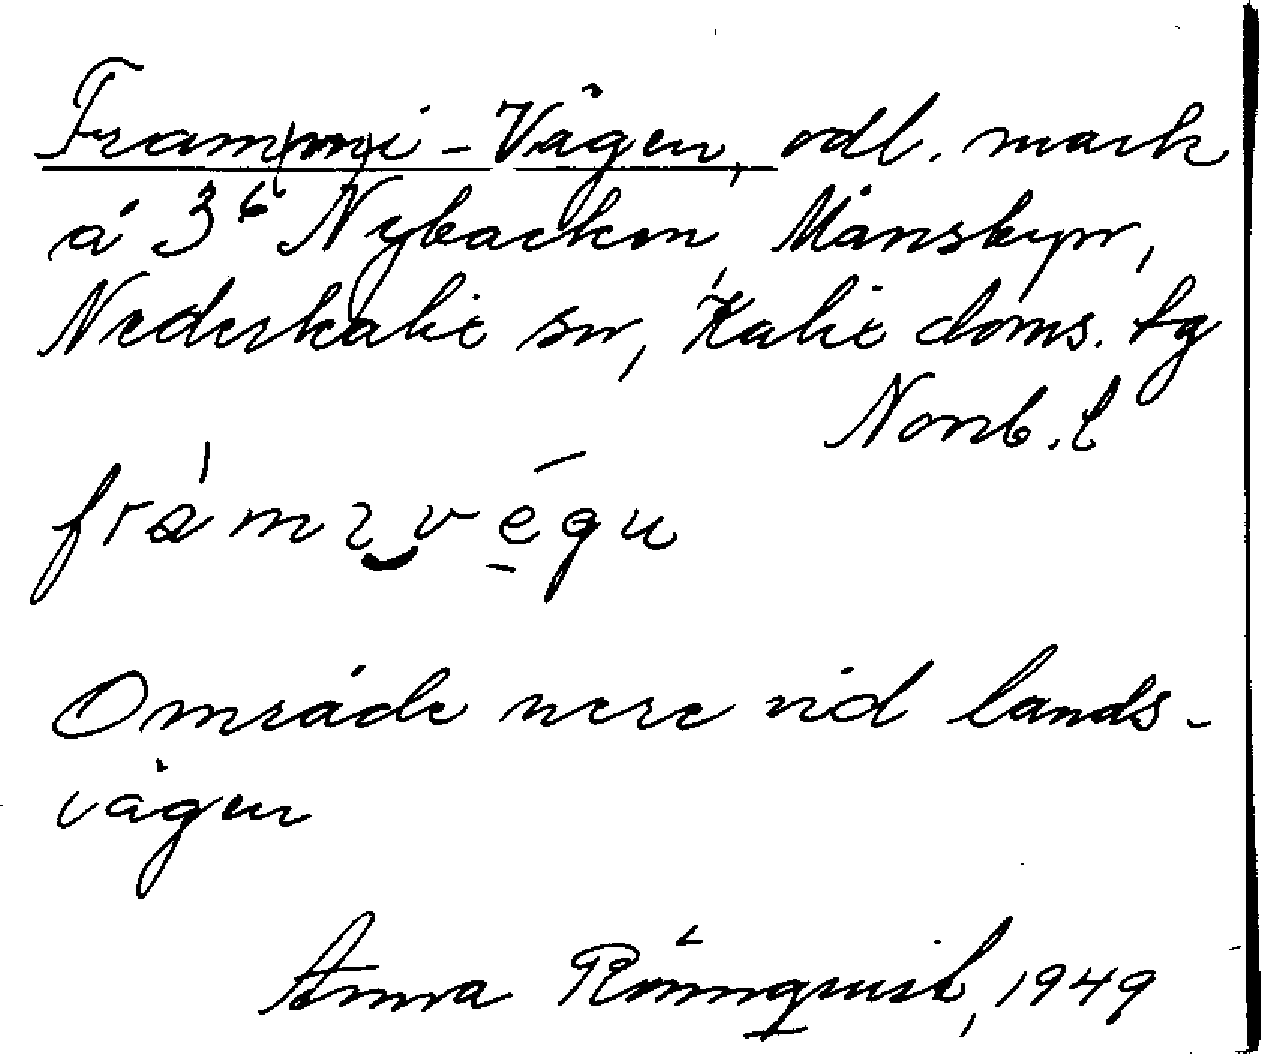 Frammi-Vägen, odl. mark
å 3⁶ Nybacken, Månsbyn,
Nederkalix sn, Kalix doms. tg
Norrb. l
Område nere vid lands-
vägen
Anna Rönnquist, 1949